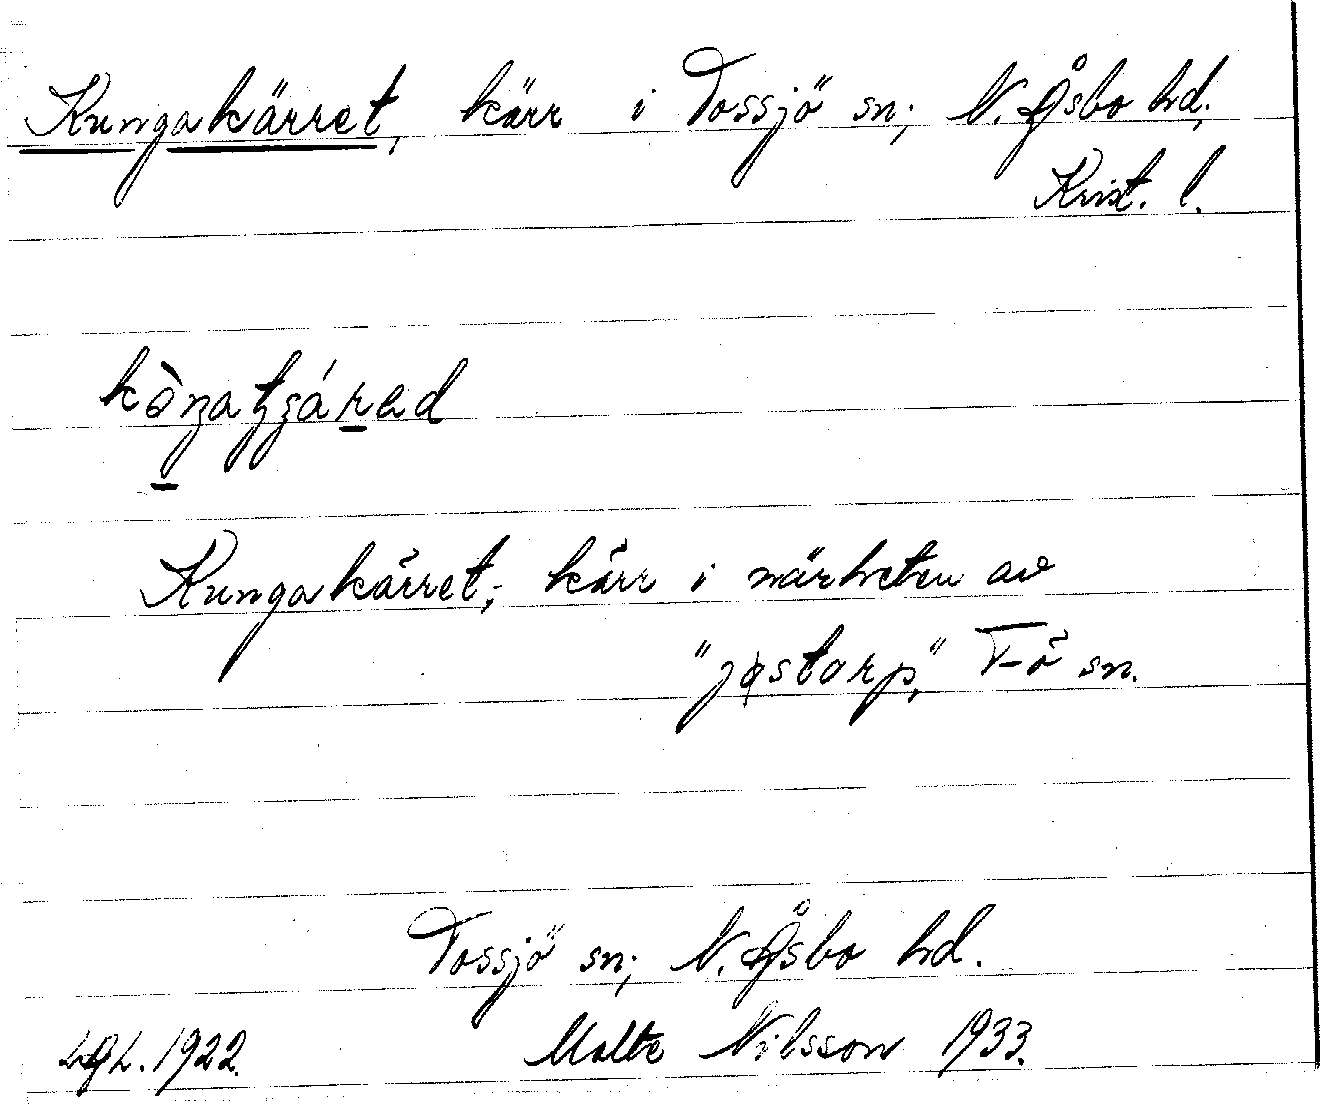 Kungakärret, kärr i Tossjö sn; N. Åsbo hd,
Krist. l.
Kungakärret; kärr i närheten av
"jøstarp," T-ö sn.
Tossjö sn; N. Åsbo hd.
Lgh. 1922. Malte Nilsson 1933.